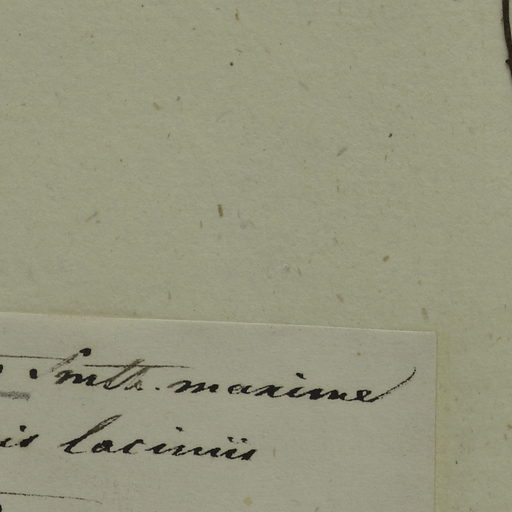 Smth. maxime
is laciniis